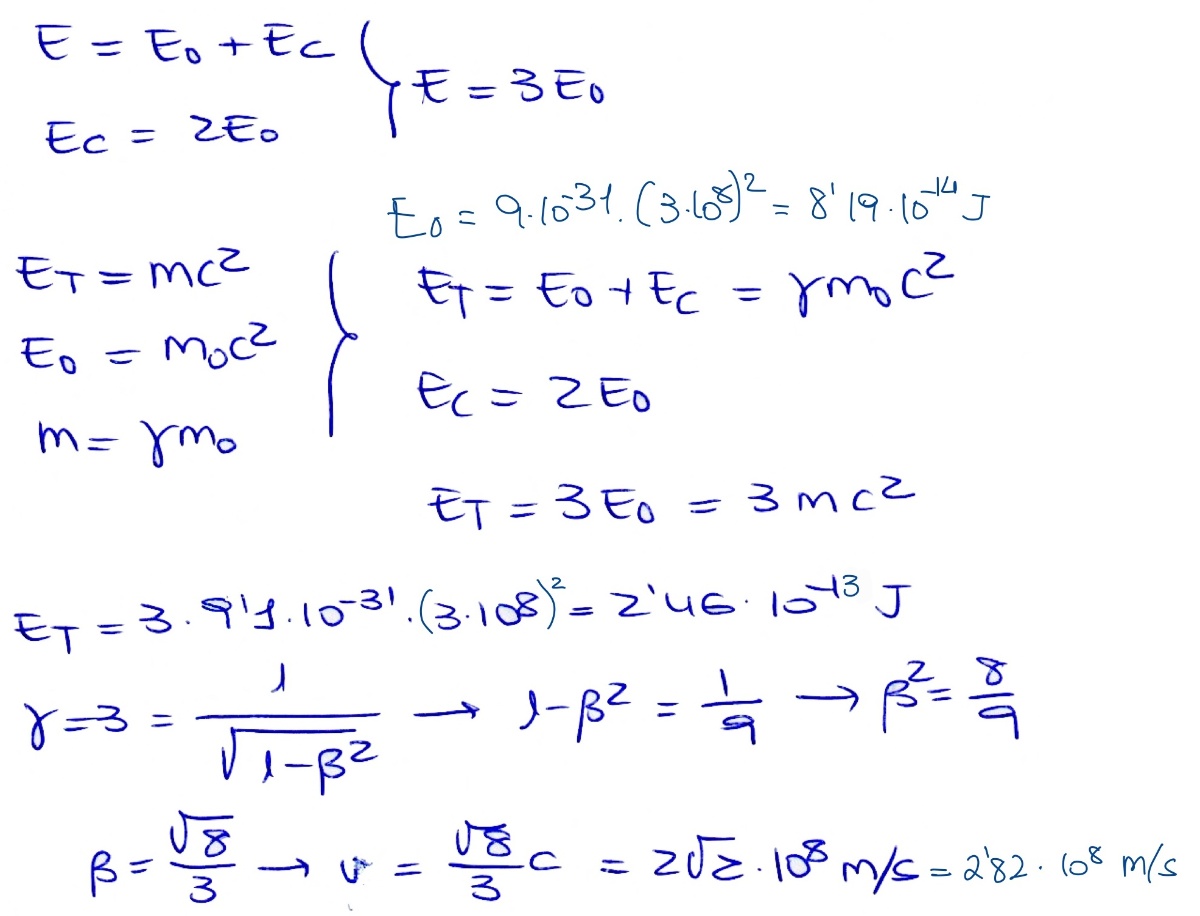 E = E₀ + Ec } E = 3E₀
Ec = 2E₀
E₀ = 9·10⁻³¹·(3·10⁸)² = 8'19·10⁻¹⁴ J
E_T = mc²
E₀ = m₀c²
m = γm₀
}
E_T = E₀ + E_C = γm₀c²
E_C = 2E₀
E_T = 3E₀ = 3mc²
E_T = 3·9'1·10⁻³¹·(3·10⁸)² = 2'46·10⁻¹³ J
γ = 3 = 1/√(1-β²) → 1-β² = 1/9 → β² = 8/9
β = √8/3 → v = √8/3 c = 2√2·10⁸ m/s = 2'82·10⁸ m/s